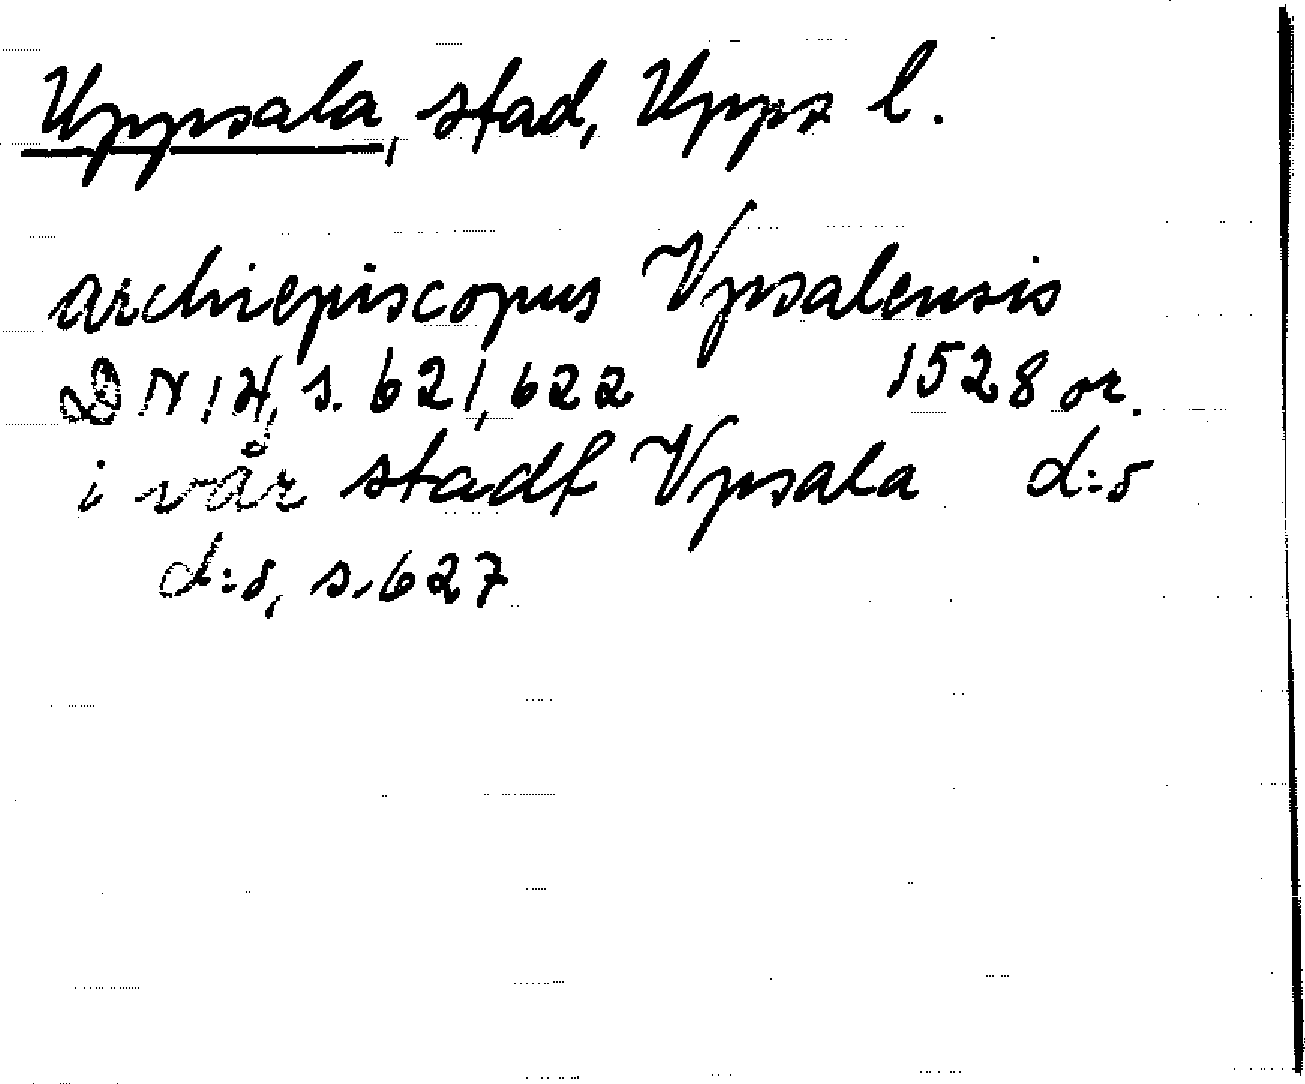 Uppsala, stad, Upps l.
archiepiscopus Vpsalensis
DN 14, s. 621, 622 1528 or.
i vår stadh Vpsala d:o
d:o, s. 627